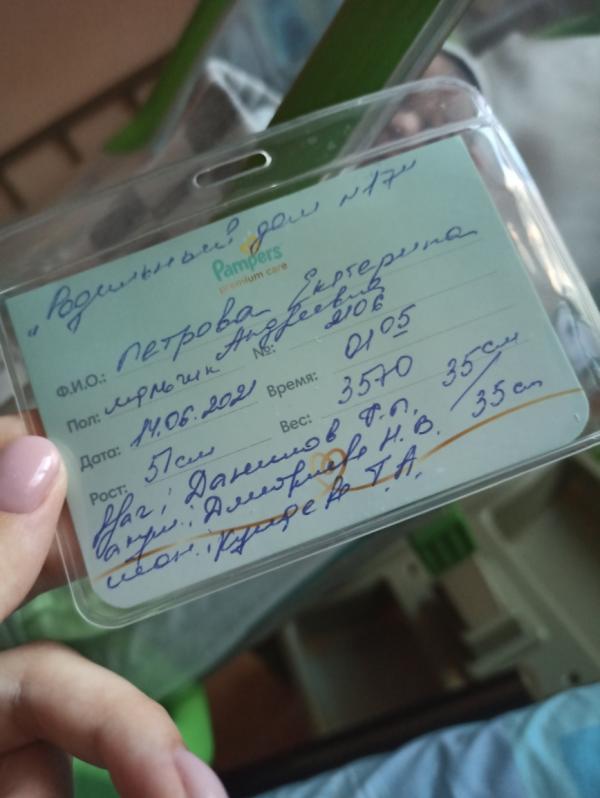 "Родильный дом №17"
Pampers
premium care
Ф.И.О.: Петрова Екатерина
Андреевна
Пол: мальчик №: 2106
Дата: 14.06.2021 Время: 01 05
Рост: 51 см Вес: 3570 35 см / 35 см
Данилов Ф.П.
акуш.: Дмитриева Н.В.
Т.А.